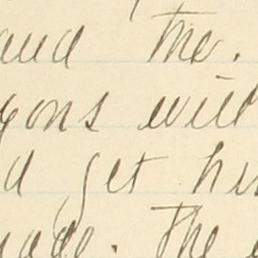 and me.
gons will
d get his
made. The